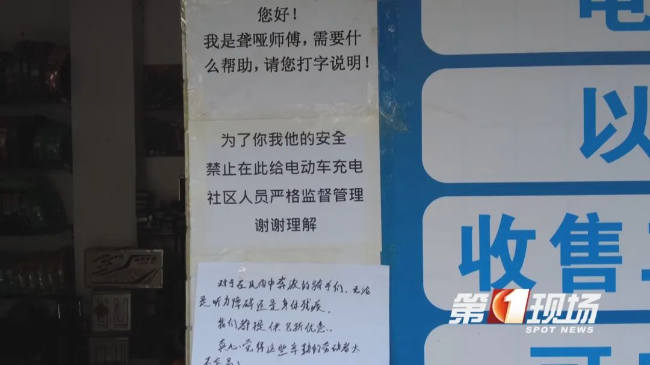 您好！
我是聋哑师傅，需要什
么帮助，请您打字说明！
为了你我他的安全
禁止在此给电动车充电
社区人员严格监督管理
谢谢理解
对于在风雨中奔波的骑手们，无论
是听力障碍还是身体残疾，
我们都提供8折优惠.
真心觉得这些辛勤的劳动者太
不容易
电
以
收售
第1现场
SPOT NEWS